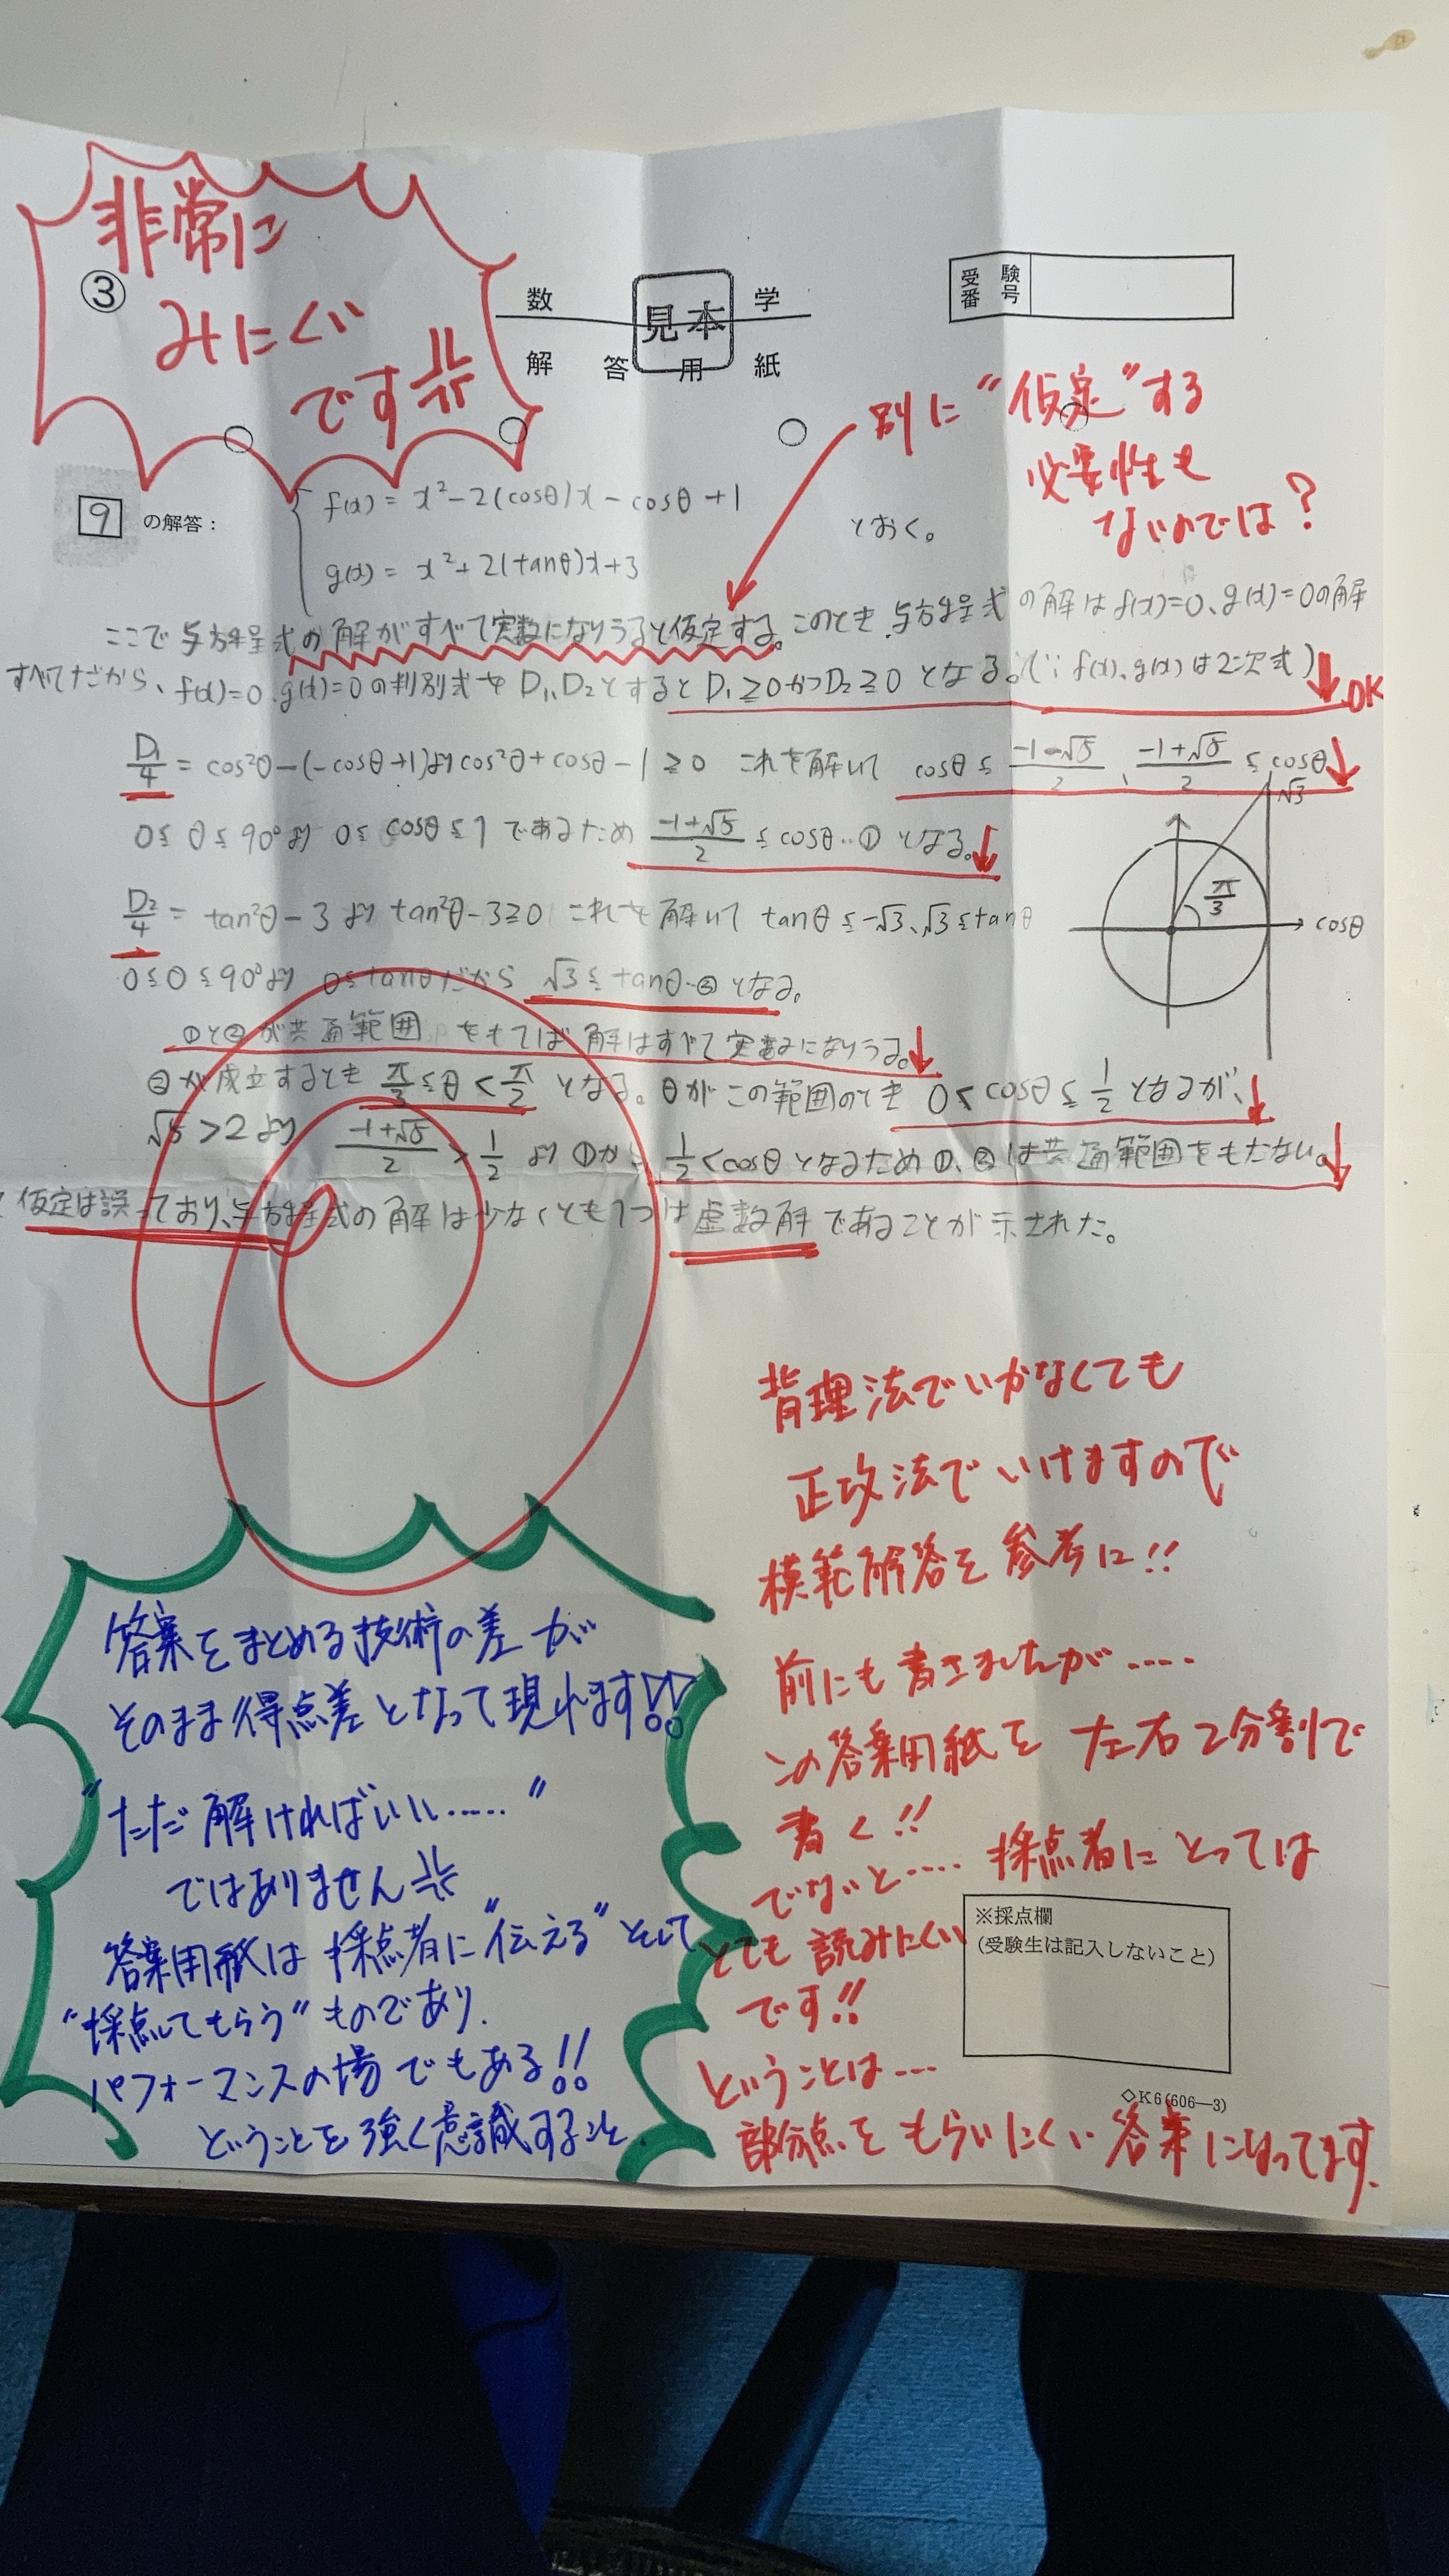 非常に
みにくい
です
③
数学
見本
解答用紙
受験
番号
別に“仮定”する
必要性も
ないのでは?
9 の解答:
f(x) = x² - 2(cosθ)x - cosθ + 1
g(x) = x² + 2(tanθ)x + 3
とおく。
ここで与方程式の解がすべて実数になりうると仮定する。このとき、与方程式の解はf(x)=0、g(x)=0の解
すべてだから、f(x)=0、g(x)=0の判別式をD₁、D₂とするとD₁≧0かつD₂≧0となる。(∵f(x)、g(x)は2次式)
OK
D₁/4 = cos²θ-(-cosθ+1)よりcos²θ+cosθ-1≧0 これを解いて cosθ≦(-1-√5)/2、(-1+√5)/2≦cosθ
0≦θ≦90°より 0≦cosθ≦1であるため (-1+√5)/2≦cosθ…①となる。
√3
π/3
cosθ
D₂/4 = tan²θ-3より tan²θ-3≧0 これを解いて tanθ≦-√3、√3≦tanθ
0≦θ≦90°より 0≦tanθだから √3≦tanθ…②となる。
①と②が共通範囲をもてば解はすべて実数になりうる。
②が成立するとき π/3≦θ<π/2となる。θがこの範囲のとき 0<cosθ≦1/2となるが、
√5>2より (-1+√5)/2>1/2より①から 1/2<cosθとなるため①、②は共通範囲をもたない。
仮定は誤っており、与方程式の解は少なくとも1つは虚数解であることが示された。
背理法でいかなくても
正攻法でいけますので
模範解答を参考に!!
前にも書きましたが……
この答案用紙を左右2分割で
書く!!
でないと……採点者にとっては
とても読みにくい
です!!
ということは…
部分点をもらいにくい答案になってます.
答案をまとめる技術の差が
そのまま得点差となって現れます!!
“ただ解ければいい……”
ではありません
答案用紙は採点者に“伝える”そして
“採点してもらう”ものであり.
パフォーマンスの場でもある!!
ということを強く意識すること.
※採点欄
(受験生は記入しないこと)
◇K6(606—3)